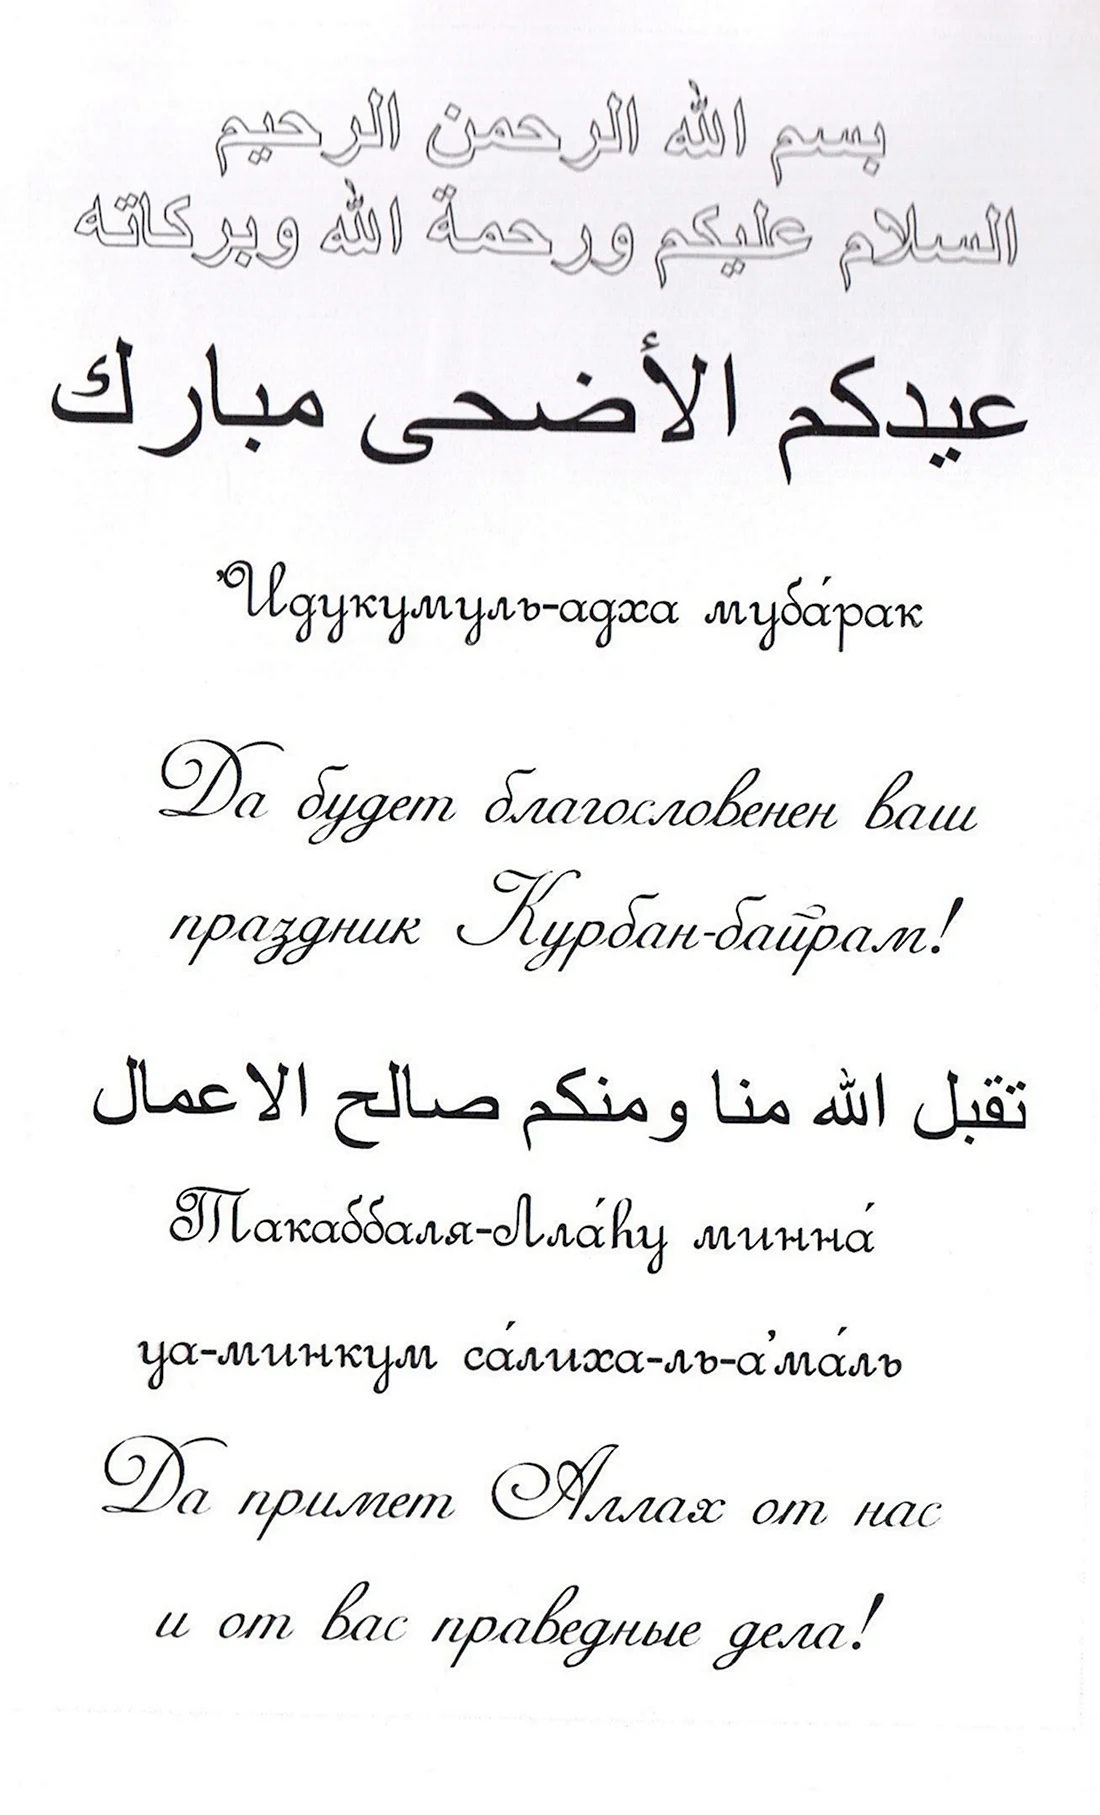 بسم الله الرحمن الرحيم
السلام عليكم ورحمة الله وبركاته
عيدكم الأضحى مبارك
'Идукумуль-адха муба́рак
Да будет благословенен ваш
праздник Курбан-байрам!
تقبل الله منا ومنكم صالح الاعمال
Такаббаля-Лла́hу минна́
уа-минкум са́лиха-ль-а'ма́ль
Да примет Аллах от нас
и от вас праведные дела!